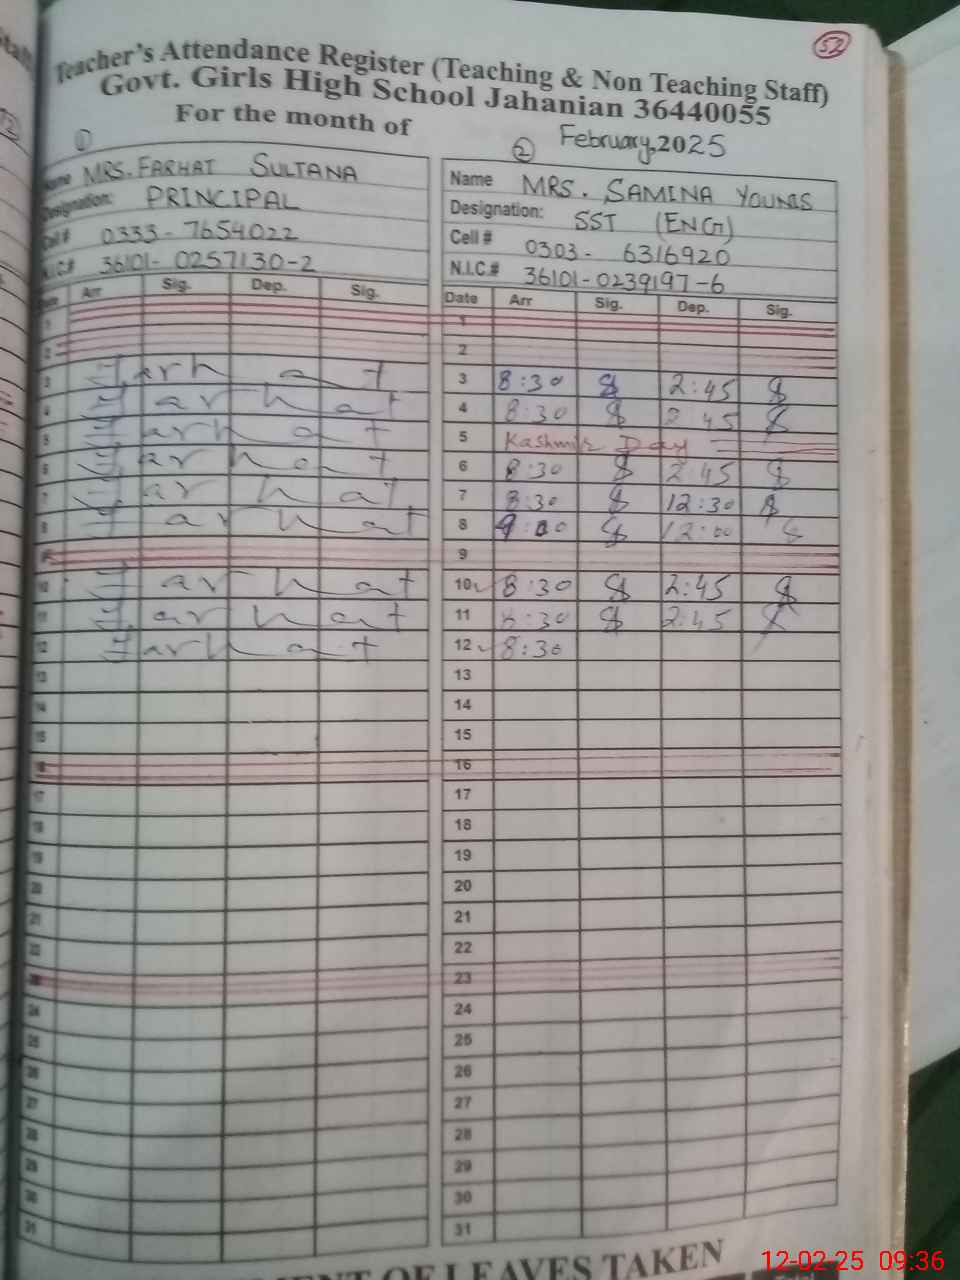 52
Teacher's Attendance Register (Teaching & Non Teaching Staff)
Govt. Girls High School Jahanian 36440055
For the month of February, 2025
1
Name MRS. FARHAT SULTANA
Designation: PRINCIPAL
Cell # 0333-7654022
N.I.C.# 36101-0257130-2
Date Arr Sig. Dep. Sig.
1
2
3 Farhat
4 Farhat
5 Farhat
6 Farhat
7 Farhat
8 Farhat
9
10 Farhat
11 Farhat
12 Farhat
13
14
15
16
17
18
19
20
21
22
23
24
25
26
27
28
29
30
31
2
Name MRS. SAMINA YOUNIS
Designation: SST (ENG)
Cell # 0303-6316920
N.I.C.# 36101-0239197-6
Date Arr Sig. Dep. Sig.
1
2
3 8:30 2:45
4 8:30 2:45
5 Kashmir Day
6 8:30 2:45
7 8:30 12:30
8 9:00 12:00
9
10 8:30 2:45
11 8:30 2:45
12 8:30
13
14
15
16
17
18
19
20
21
22
23
24
25
26
27
28
29
30
31
OF LEAVES TAKEN
12-02-25 09:36